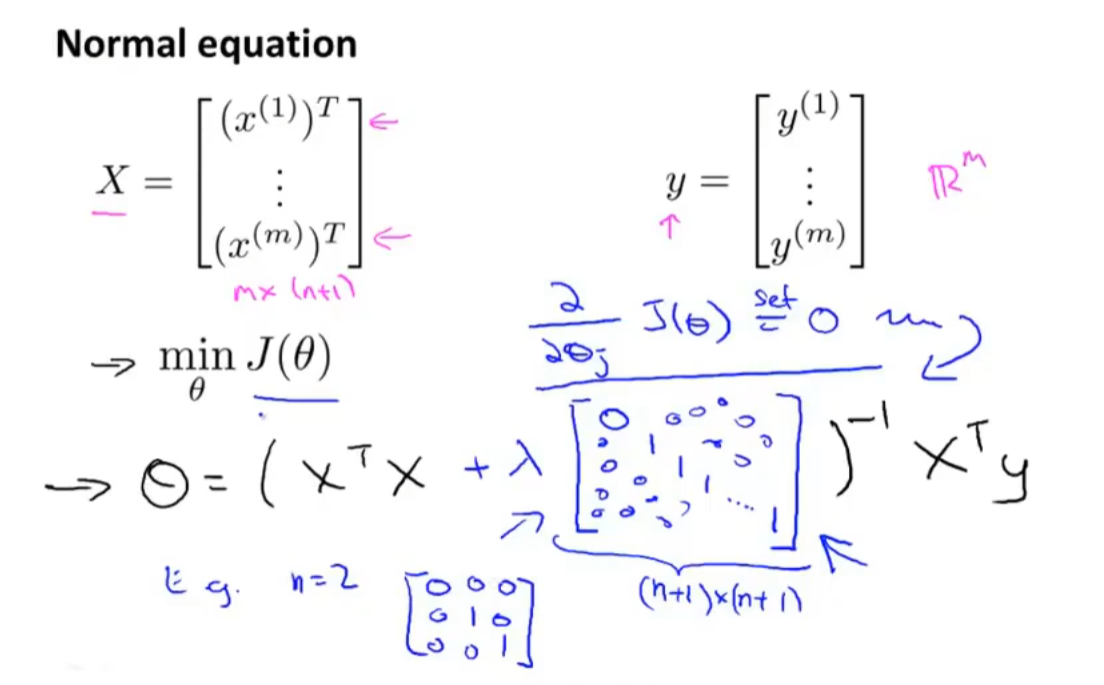 Normal equation
X = [ (x^(1))^T ⋮ (x^(m))^T ] ← ←
m × (n+1)
y = [ y^(1) ⋮ y^(m) ] ℝ^m
↑
∂/∂θ_j J(θ) set = 0
→ min_θ J(θ)
→ θ = ( X^T X + λ [ 0 1 1 1 .... 1 ] )^-1 X^T y
(n+1)×(n+1)
E.g. n=2
[ 0 0 0
0 1 0
0 0 1 ]